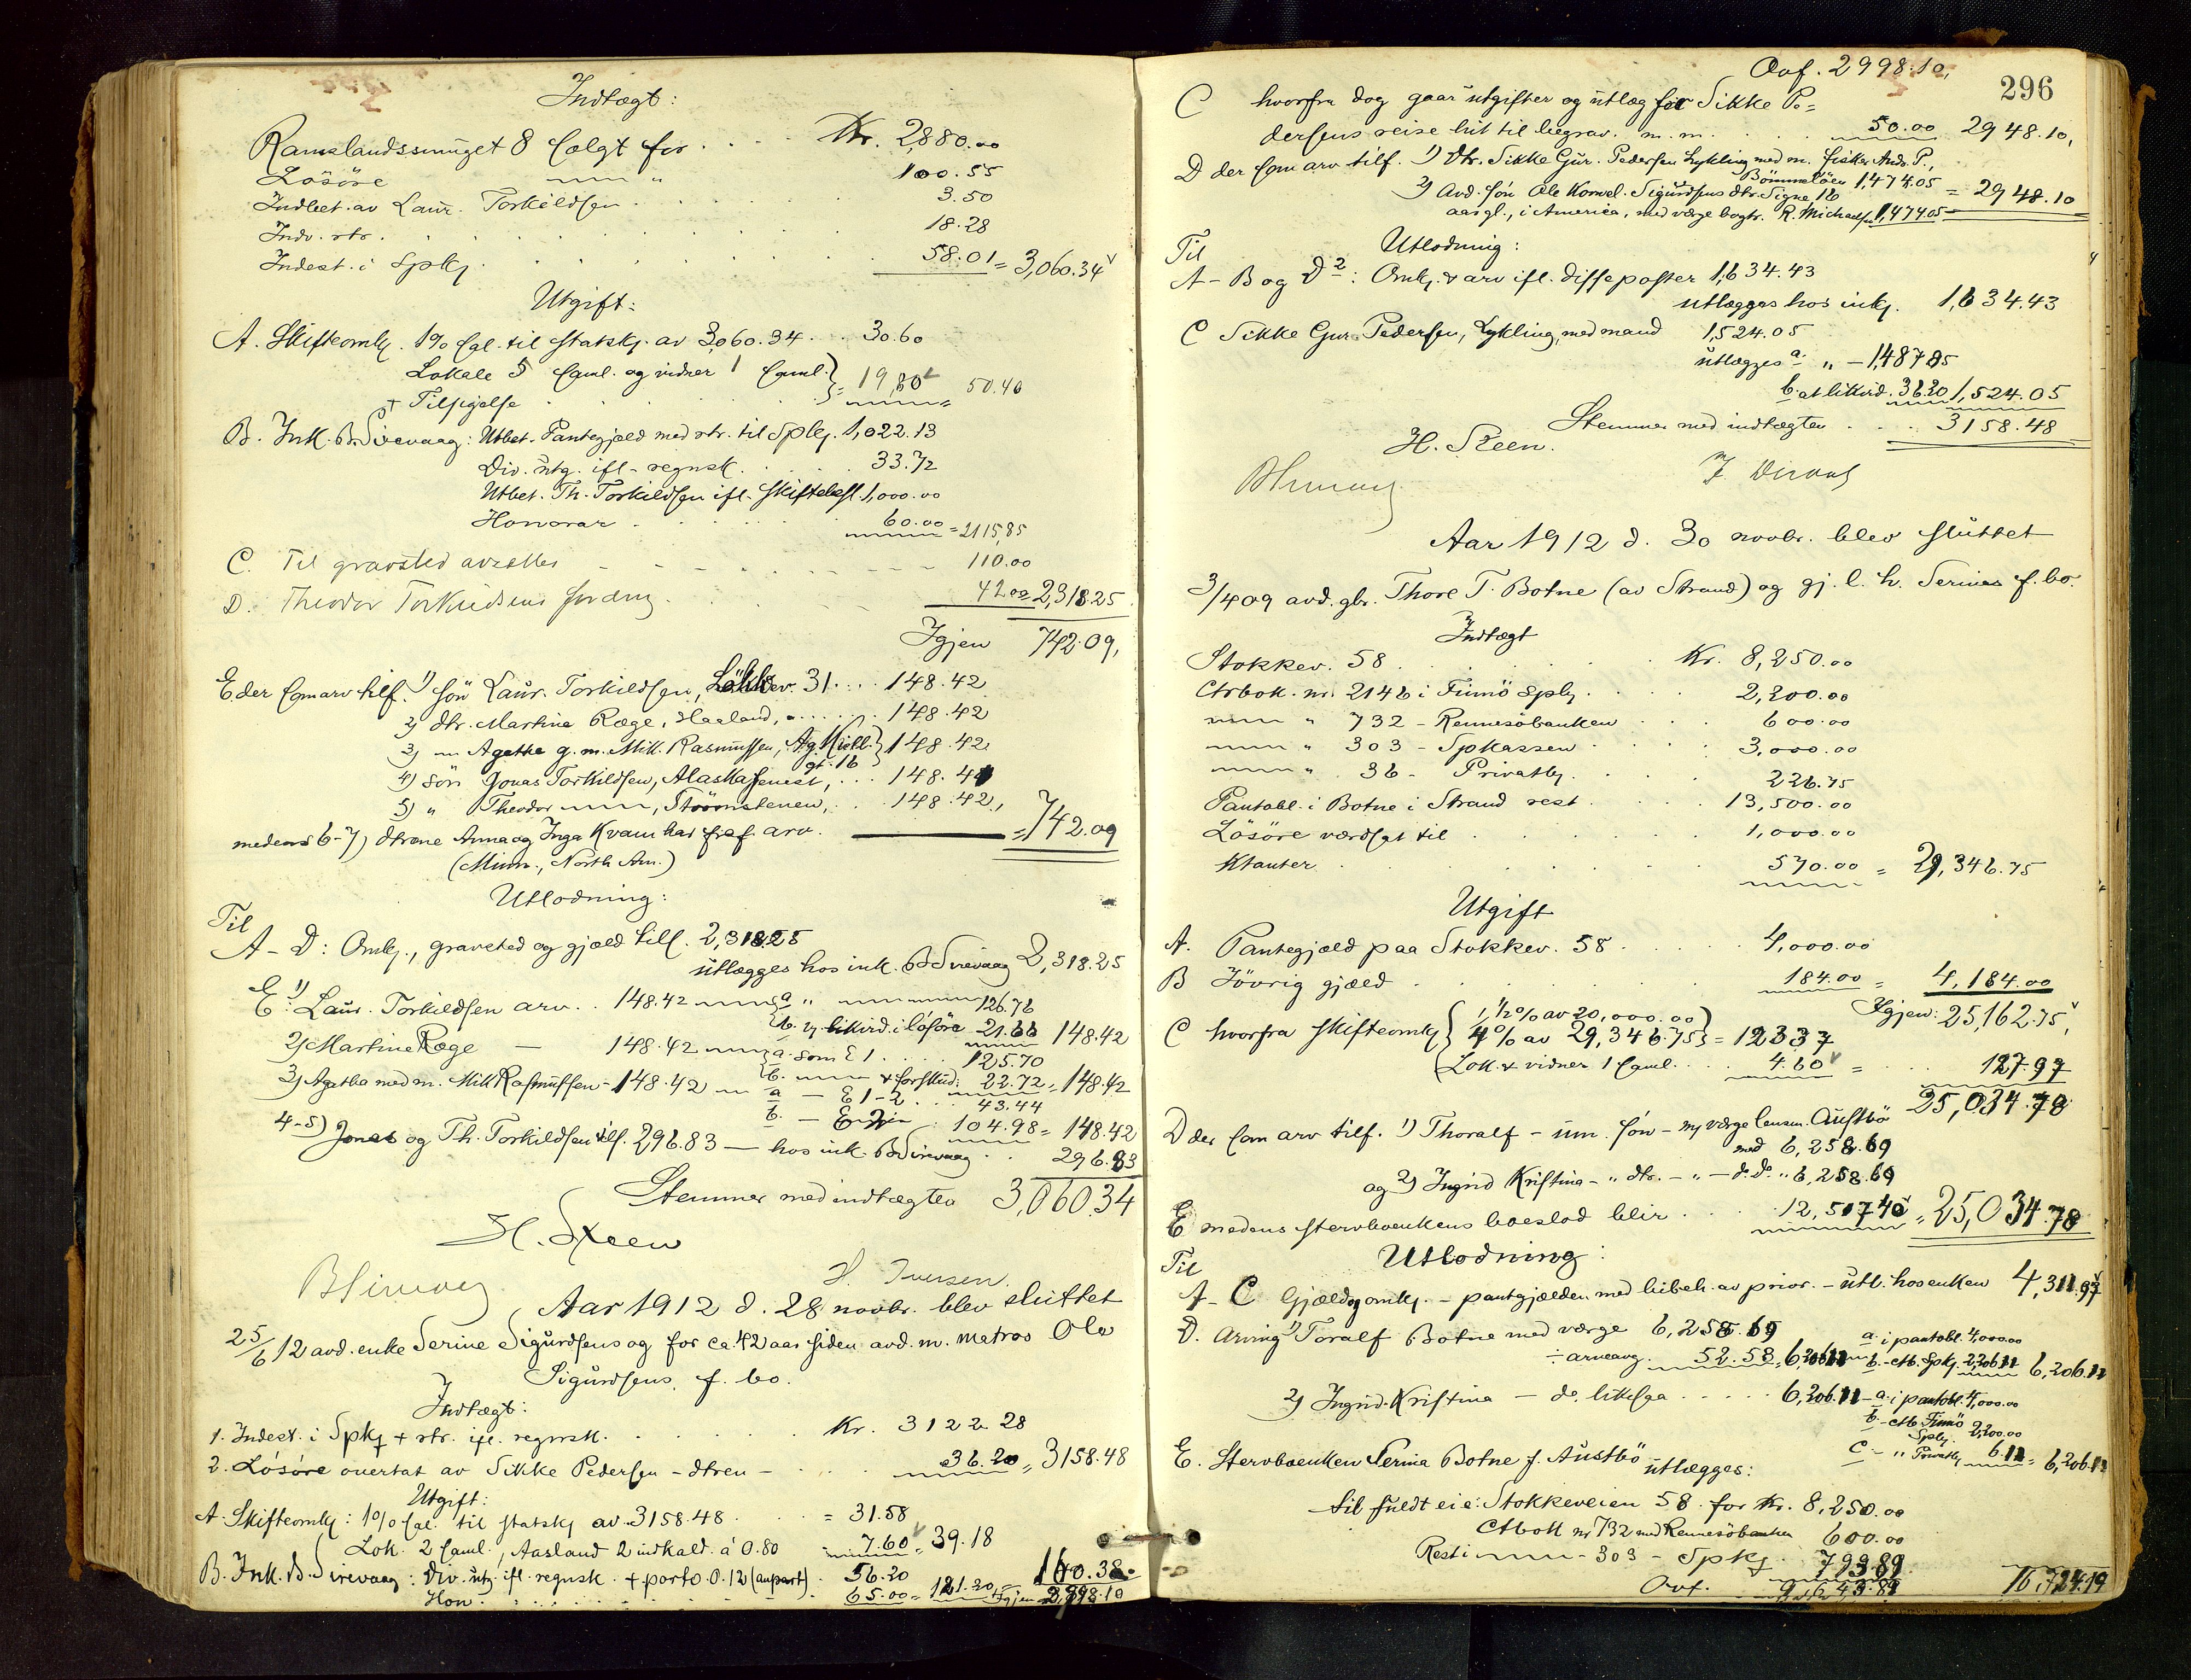 Indtægt:
Ramslandssmuget 8 solgt for . . . Kr. 2,880.00
Løsöre 100.55
Indbet. av Laur. Torkildsen . . . 3.50
Indv. rtr. . . . 18.28
Indest. i Spkj. . . . 58.01 = 3,060.34
Utgift:
A. Skifteomk. 1% sal. til statskj. av 3,060.34 . . 30.60
Lokale 5 saml. og vidner 1 saml. } = 19,80 50.40
+ Tilsigelse . . .
B. Ink. B. Sirevaag: Utbet. Pantegjæld med rtr. til Spkj. 1,022.13
Div. utg. ifl. regnsk. . . . 33.72
Utbet. Th. Torkildsen ifl. skiftebesl. 1,000.00
Honorar . . . 60.00 = 2115,85
C. Til gravsted avsettes 110.00
D. Theodor Torkildsens fordring 42.00 2,318.25
Igjen 742.09,
E. der som arv tilf. 1) søn Laur. Torkildsen, Løkkev. 31 . . . 148.42
2) dtr. Martine Ræge, Haaland, . . . 148.42
3) Agathe g. m. Mik. Rasmussen, 148.42
gt. 16
4) søn Jonas Torkildsen, Alaska senest, . . . 148.41
5) " Theodor, Strömstenen, . . 148.42,
medens 6-7) dtrene Anna og Inga Kvam har fraf. arv. = 742.09
(Minn., North Am.)
Utlodning:
Til
A - D: Omk., gravsted og gjæld tils. 2,318.25
utlægges hos ink. B Sirevaag 2,318.25
E. 1) Laur. Torkildsen arv . . 148.42 a " 126.76
b. likvid. i løsöre 21.66 148.42
2) Martine Ræge — 148.42 a. som E 1 . . . 125.70
b. + forskud: 22.72 = 148.42
3) Agatha med m. Mik Rasmussen - 148.42 a — E 1-2 . . 43.44
b. — 104.98 = 148.42
4-5) Jonas og Th. Torkildsen tils. 296.83 — hos ink. B Sirevaag . . 296.83
Stemmer med indtægten 3,060.34
H. Steen
B Sirevaag H. Iversen
Aar 1912 d. 28 novbr. blev sluttet
25/6 12 avd. enke Serine Sigurdsens og for ca. 42 aar siden avd. m. matros Ole
Sigurdsens f. bo.
Indtægt:
1. Indest. i Spkj + rtr. ifl. regnsk. . . . Kr. 3122.28
2. Løsöre overtat av Sikke Pedersen - dtren - . . . 36.20 = 3158.48
Utgift:
A. Skifteomk: 1% sal. til statskj av 3158.48 . . . = 31.58
Lok. 2 saml., Aasland 2 indkald. á 0.80 7.60 = 39.18
B. Ink. B. Sirevaag: Div. utg. ifl. regnsk. + porto 0.12 (anpart) . 56.20 160.38
Hon. . . . 65.00 = 121.20 Igjen 2,998.10
Ovf. 2998.10,
296
C hvorfra dog gaar utgifter og utlæg for Sikke Pe=
dersens reise hit til begrav. m. m. . . . 50.00 2948.10,
D der som arv tilf. 1) Dtr. Sikke Gur. Pedersen Lykling med m. fisker Andr. P.,
Bömmelöen 1,474.05
2) Avd. søn Ole Kornel. Sigurdsens dtr. Signe 16 = 2948.10
aar gl., i America, med værge bogtr. R. Michaelsen 1,474.05
Til Utlodning:
A - B og D 2: Omk. & arv ifl. disse poster 1,634.43
utlægges hos ink. 1,634.43
C Sikke Gur. Pedersen, Lykling, med mand 1,524.05
utlægges a. " - 1,487.85
b. at likvid. 36.20 1,524.05
Stemmer med indtægten . . . 3158.48
H. Steen.
Aar 1912 d. 30 novbr. blev sluttet
3/4 09 avd. gbr. Thore T. Botne (av Strand) og gj. l. h. Serines f. bo.
Indtægt
Stokkev. 58 . . . Kr. 8,250.00
Ctrbok. nr. 2146 i Finnö Spkj. . . . 2,200.00
" 732 - Rennesöbanken . . . 600.00
" 303 - Spkassen . . . 3,000.00
" 36 - Privatbk. . . . 226.75
Pantobl. i Botne i Strand rest . . . 13,500.00
Løsöre værdsat til . . . 1,000.00
Ktanter . . . 570.00 = 29,346.75
Utgift
A. Pantegjæld paa Stokkev. 58 . . . 4,000.00
B Iövrig gjæld . . . 184.00 = 4,184.00
Igjen: 25,162.75
C hvorfra skifteomk { 1/2% av 20,000.00
4% av 29,346.75 } = 123.37
Lok. & vidner 1 saml. . . . 4.60 = . . 127.97
25,034.78
D der som arv tilf. 1) Thoralf - um. søn - m/ værge lensm. Austbö
med 6,258.69
og 2) Ingrid Kristina - " dtr. - " - do. do. " 6,258.69
E medens stervboenkens boeslod blir . . . 12,517.40 = 25,034.78
Til Utlodning:
A - C Gjæld og omk. - pantgjælden med bibeh. av prior. - utl. hos enken 4,311.97
D. Arving 1) Toralf Botne med værge 6,258.69 a. i pantobl. 4,000.00
÷ arveavg. 52.58 = 6,206.11 b. - ctb. Spkj. 2,206.11 6,206.11
2) Ingrid Kristina — do. likesaa . . . 6,206.11 - a. i pantobl. 4,000.00
b. - ctb Finnö
Spkj. 2,200.00
c - " Privatbk. 6.11 = 6,206.11
E. Stervboenken Serina Botne f. Austbö utlægges:
til fuldt eie: Stokkeveien 58 for Kr. 8,250.00
Ctbok nr 732 med Rennesöbanken 600.00
Rest i - 303 - Spkj. 793.89
Ovf. 9,643.89 16,724.19